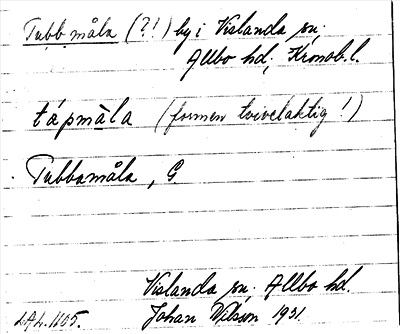 Tubbmåla (?!) by i Vislanda sn.
Allbo hd, Kronob. l.
tápmåla (formen tvivelaktig!)
Tubbamåla, G.
Vislanda sn. Allbo hd.
LAL. 1105. Johan Nilsson 1931.